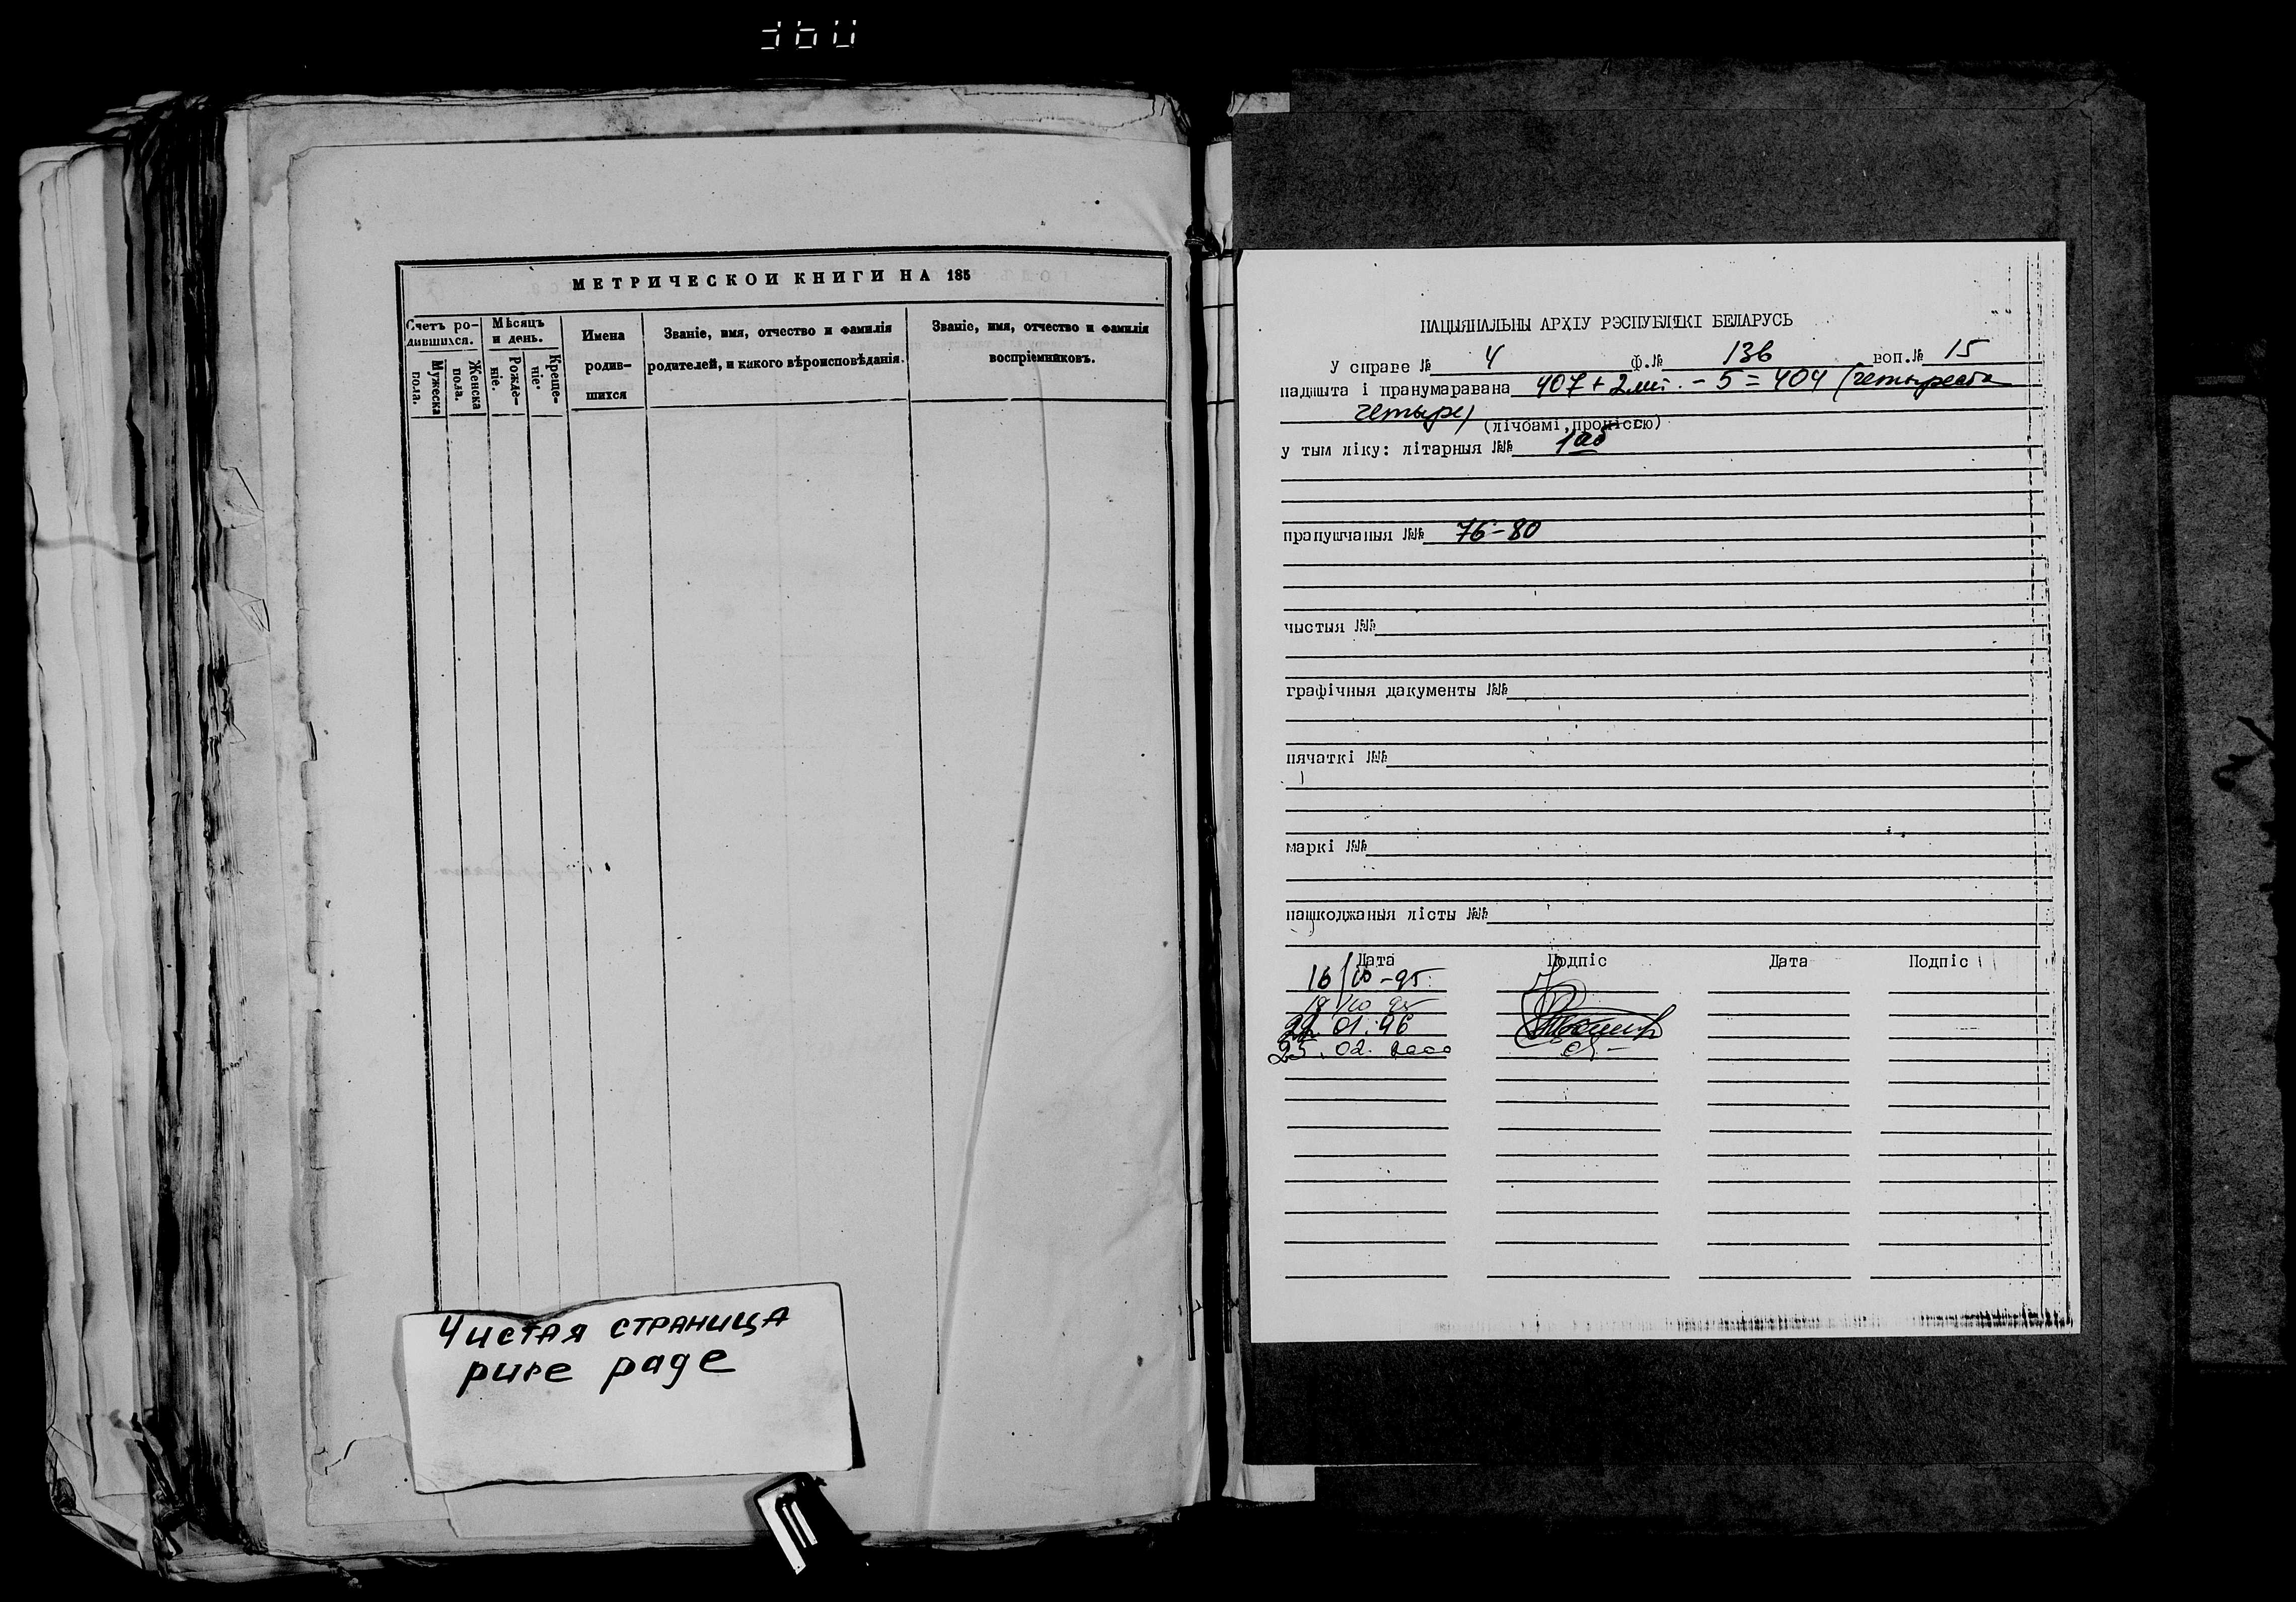 МЕТРИЧЕСКОЙ КНИГИ НА 185
Счетъ ро-
дившихся.
Мужеска
пола.
Женска
пола.
Мѣсяцъ
и день.
Рожде-
ніе.
Креще-
ніе.
Имена
родив-
шихся
Званіе, имя, отчество и фамилія
родителей, и какого вѣроисповѣданія.
Званіе, имя, отчество и фамилія
воспріемниковъ.
Чистая страница
pure page
НАЦЫЯНАЛЬНЫ АРХІУ РЭСПУБЛІКІ БЕЛАРУСЬ
У справе № 4 Ф.№ 136 воп.№ 15
падшыта і пранумаравана 407 + 2 лит. - 5 = 404 (четыреста
четыре)
(лічбамі, пропіссю)
у тым ліку: літарныя №№ 1аб
прапушчаныя №№ 76-80
чыстыя №№
графічныя дакументы №№
пячаткі №№
маркі №№
пашкоджаныя лісты №№
Дата Подпіс Дата Подпіс
16/10-95
19/10 95
22.01.96
25.02.2000